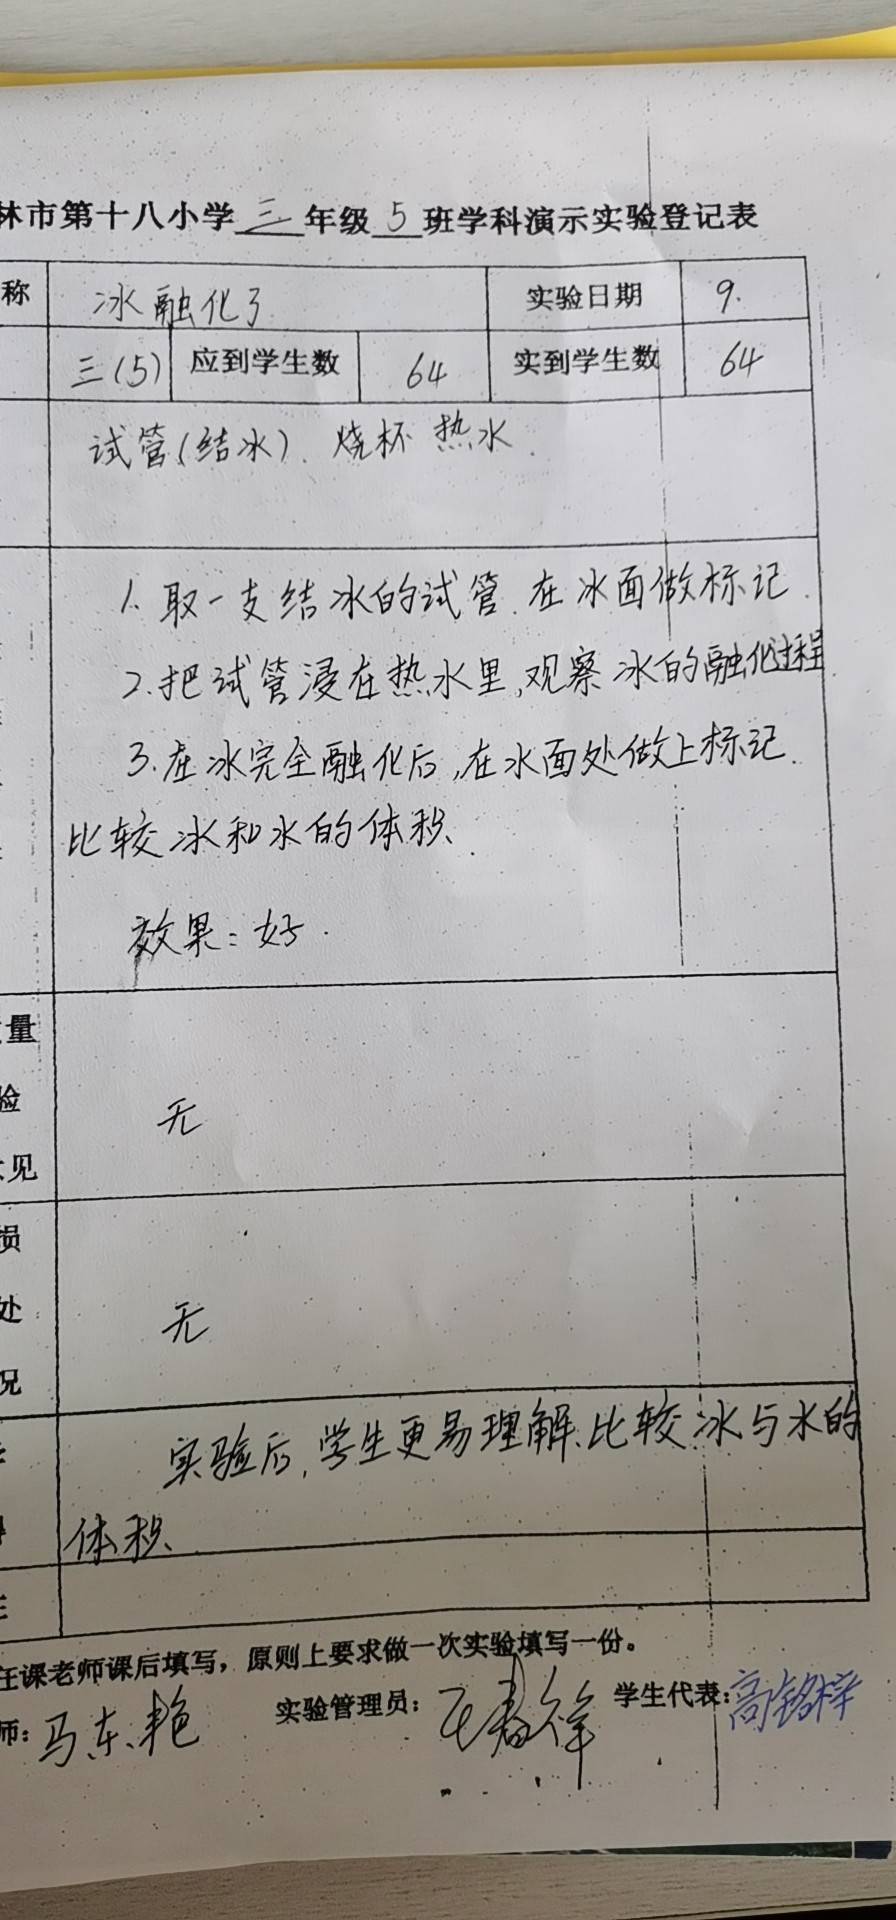 林市第十八小学三年级5班学科演示实验登记表
称 冰融化了 实验日期 9.
三(5) 应到学生数 64 实到学生数 64
试管(结冰)、烧杯 热水.
1. 取一支结冰的试管.在冰面做标记.
2. 把试管浸在热水里,观察冰的融化过程
3. 在冰完全融化后,在水面处做上标记.
比较冰和水的体积、
效果:好.
量
验
无
见
损
处
无
况
实验后,学生更易理解、比较冰与水的
体积、
任课老师课后填写,原则上要求做一次实验填写一份。
师:马东艳 实验管理员: 学生代表:高铭梓